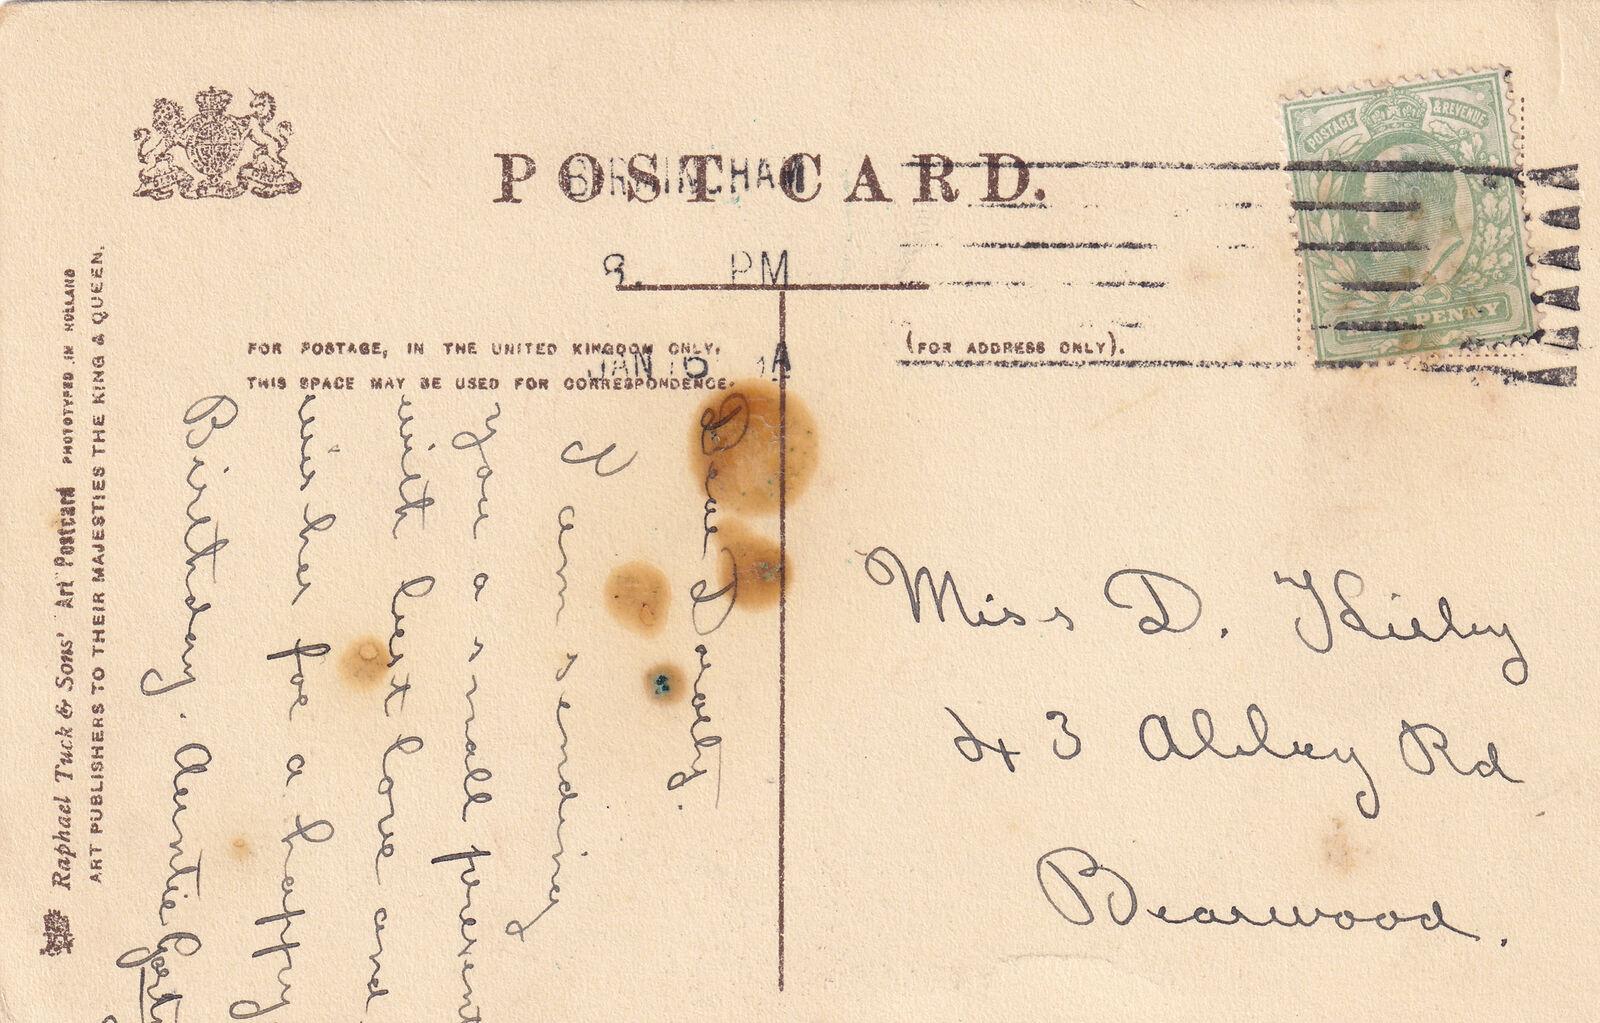 POST CARD.
BIRMINGHAM
9. PM
JAN 16
POSTAGE & REVENUE
PENNY
FOR POSTAGE, IN THE UNITED KINGDOM ONLY,
THIS SPACE MAY BE USED FOR CORRESPONDENCE.
(FOR ADDRESS ONLY).
Raphael Tuck & Sons' "Art" Postcard PHOTOTYPED IN HOLLAND
ART PUBLISHERS TO THEIR MAJESTIES THE KING & QUEEN.
Dear Dorothy.
I am sending
you a small present
with best love and
wishes for a happy
Birthday. Auntie
Miss D.
43 Abbey Rd
Bearwood.